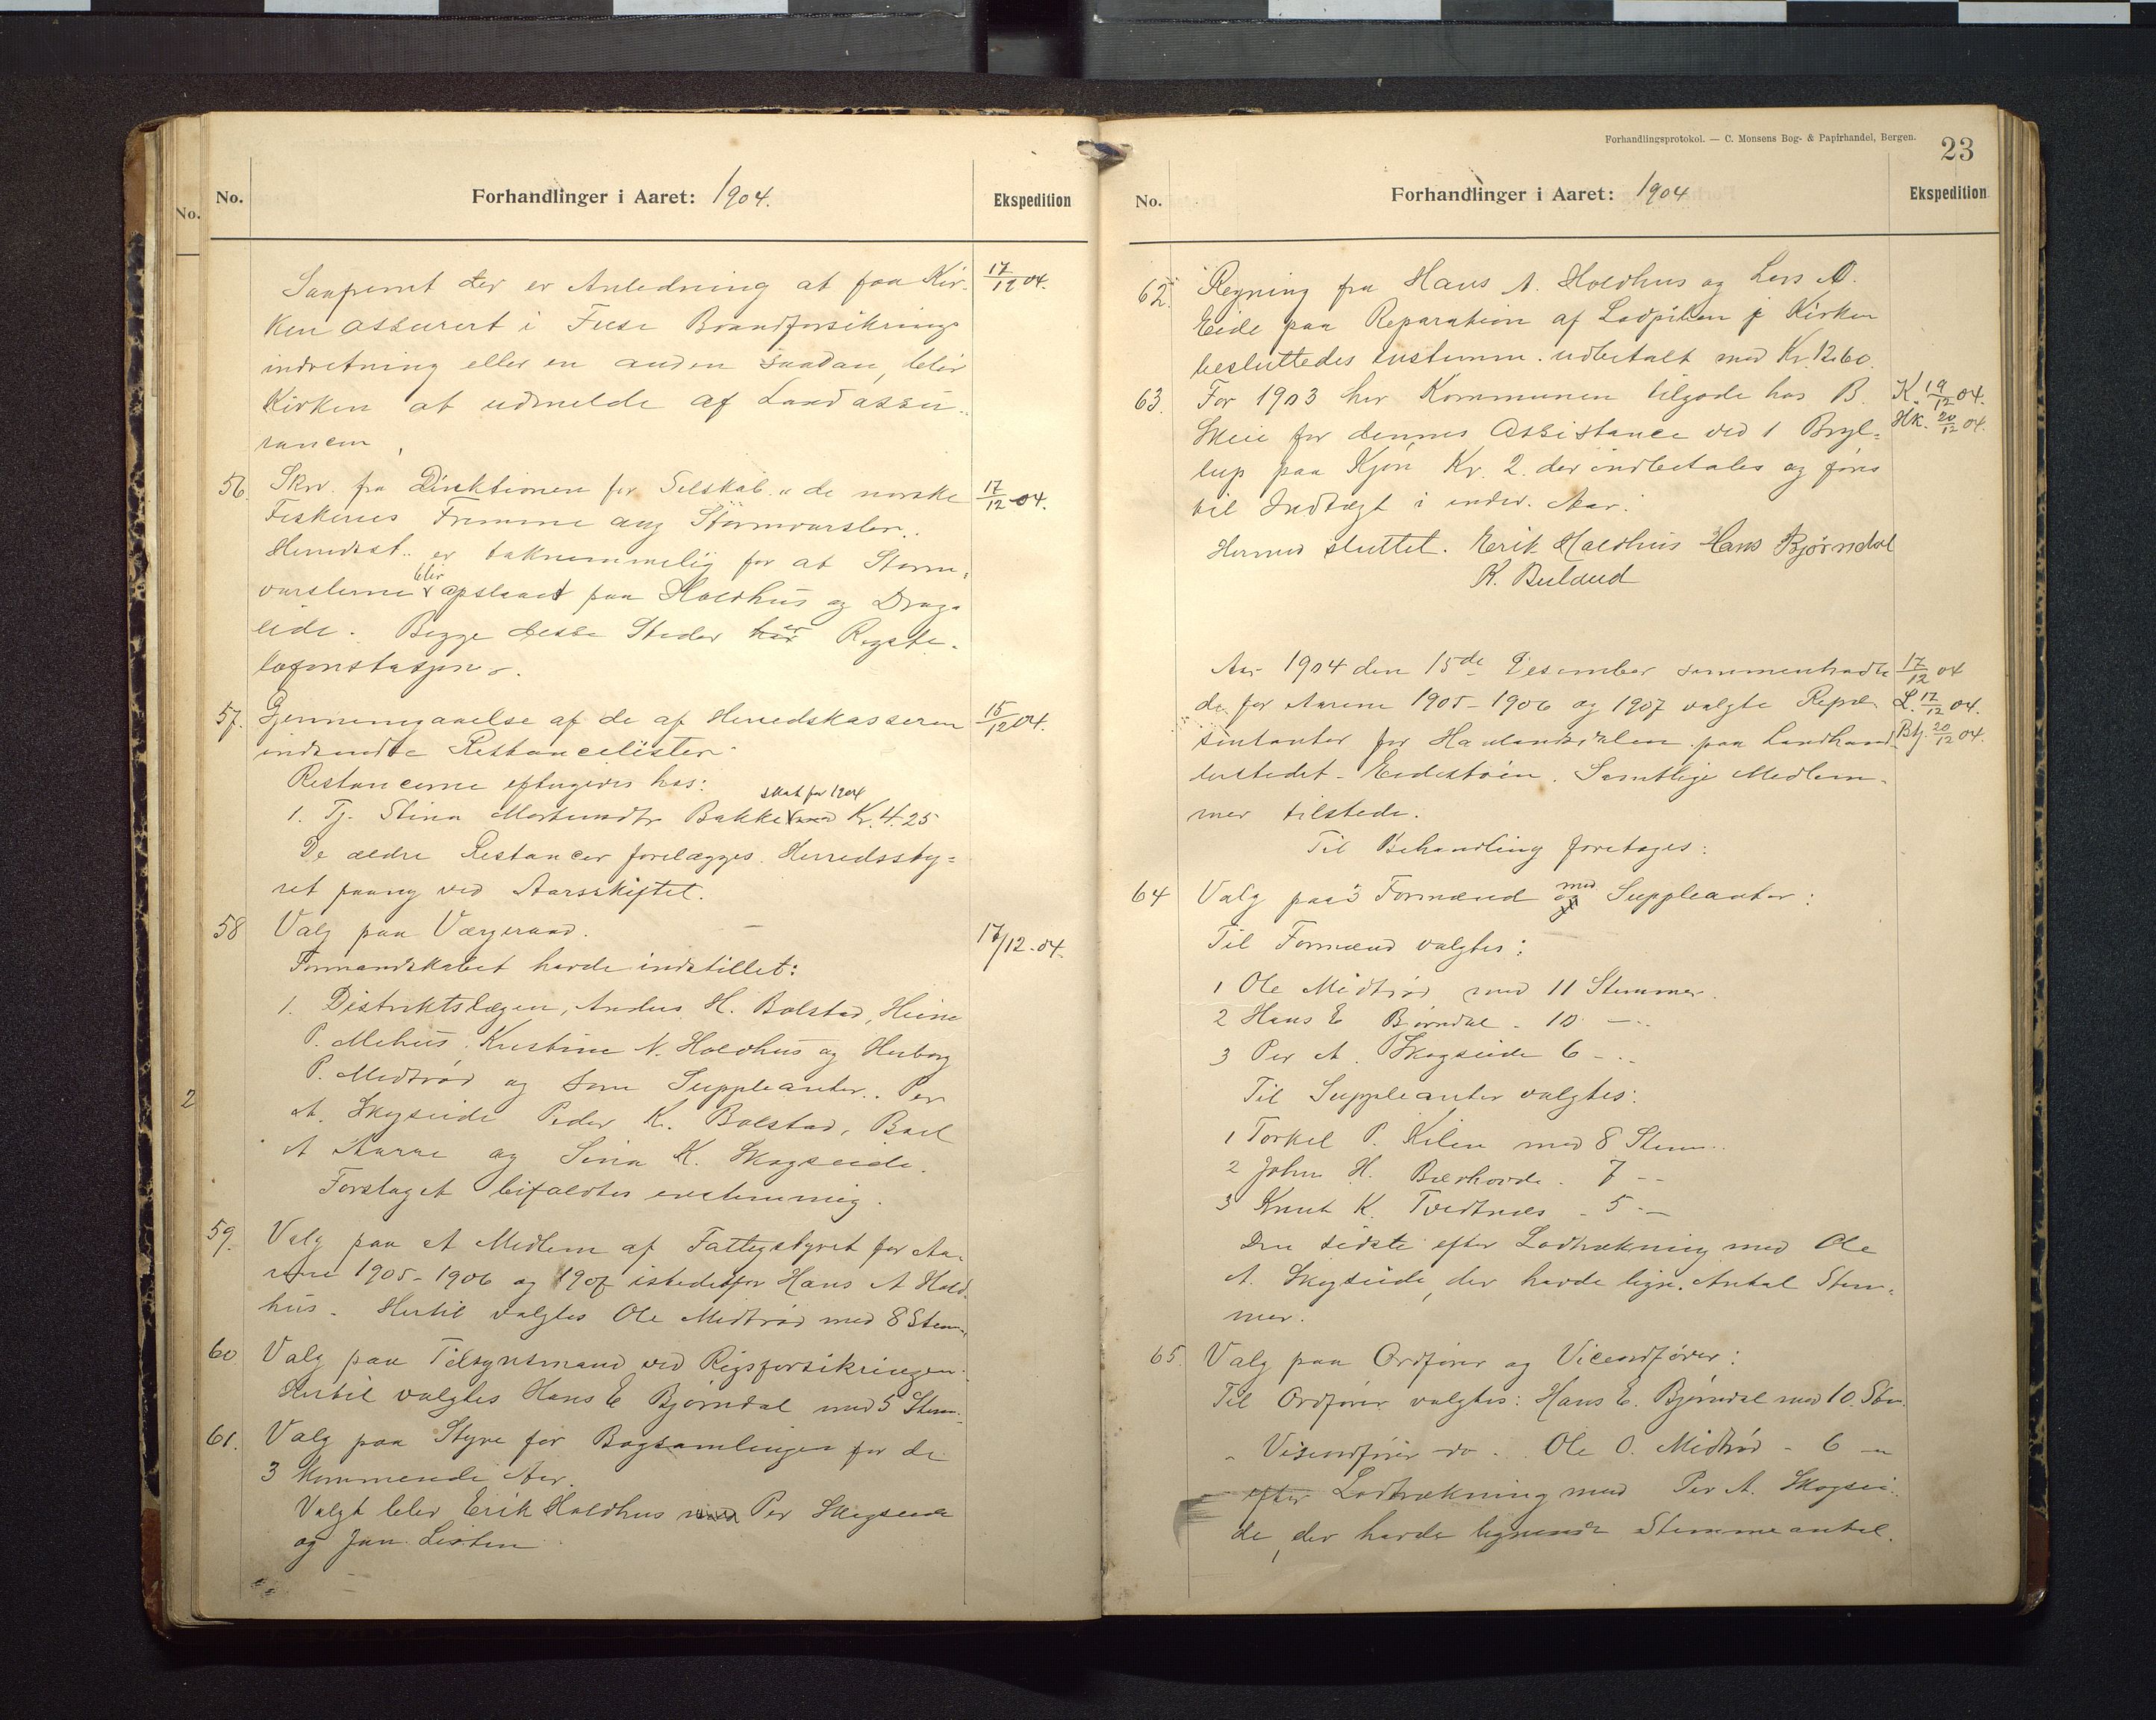 No.
No.
Forhandlinger i Aaret: 1904.
Ekspedition
Saafremt der er Anledning at faa Kir-
17/12 04.
ken assurert i Fuse Brandforsikrings
indretning eller en anden saadan, blir
Kirken at udmelde af Landassu-
rancen.
56.
Skr. fra Direktionen for Selskab. "de norske
17/12 04.
Fiskeries Fremme ang Stormvarsler.
Herredsst. er taknemmelig for at Storm-
varslerne blir opslaaet paa Holdhus og Drage
eide. Begge disse Steder har er Rigste-
lefonstasjoner.
57.
Gjennemgaaelse af de af Herredskasseren
15/12 04.
indsendte Restancelister.
Restancerne eftergives hos:
1. Tj. Stina Mortensdtr Bakke skat for 1904 med Kr. 4.25
De ældre Restancer forelægges Herredssty-
ret paany ved Aarsskiftet.
58
Valg paa Værgeraad.
17/12-04.
Formandskabet havde indstillet:
1. Distriktslægen, Anders H. Bolstad, Heine
P. Mehus, Kristine N. Holdhus og Herborg
P. Midtrød og som Suppleanter. Per
A. Skogseide Peder K. Bolstad,
2
A og Sina K. Skogseide.
Forslaget bifaldtes enstemmig.
59.
Valg paa et Medlem af Fattigstyret for Aa-
rene 1905-1906 og 1907 istedetfor Hans A Hold
hus. Hertil valgtes Ole Midtrød med 8 Stem.
60
Valg paa Tilsynsmand ved Rigsforsikringen.
Hertil valgtes Hans E Bjørndal med 5 Stem.
61.
Valg paa Styre for Bogsamlingen for de
3 kommende Aar.
Valgt blev Erik Holdhus med Per Skogseide
og Jan Listen
Forhandlingsprotokol. — C. Monsens Bog- & Papirhandel, Bergen.
23
No.
Forhandlinger i Aaret: 1904
Ekspedition
62.
Regning fra Hans A. Holdhus og Lars A.
Eide paa Reparation af Ladpiken i Kirken
besluttedes enstemm. udbetalt med Kr. 12.60.
63.
For 1903 har Kommunen tilgode hos B.
K. 19/12 04.
Skeie for dennes Assistance ved 1 Bryl-
Hk. 20/12 04.
lup paa Kr. 2. der indbetales og føres
til Indtægt i inder. Aar.
Hermed sluttet. Erik Holdhus Hans Bjørndal
K. Buland
Aar 1904 den 15de Desember sammentraadte
17/12 04
de for Aarene 1905-1906 og 1907 valgte Repræ
L. 17/12 04.
sentanter for Haalandsdalen paa Landhand
Btj. 20/12 04.
lerstedet Eidestøen. Samtlige Medlem-
mer tilstede.
Til Behandling foretages:
64
Valg paa 3 Formænd og med Suppleanter:
Til Formænd valgtes:
1 Ole Midtrød med 11 Stemmer.
2 Hans E Bjørndal - 10 —
3 Per A. Skogseide 6 —
Til Suppleanter valgtes:
1 Torkel P. Kilen med 8 Stem.
2 John H. Bækhovde. 7 --
3 Knut K. Tvedtnæs - 5 —
Den sidste efter Lodtrækning med Ole
A. Skogseide, der havde lign. Antal Stem-
mer.
65.
Valg paa Ordfører og Viceordfører:
Til Ordfører valgtes: Hans E. Bjørndal med 10. Stem.
- Viseordfører do. Ole O. Midtrød - 6 —
- efter Lodtrækning med Per A. Skogsei-
de, der havde lignende Stemmeantal.